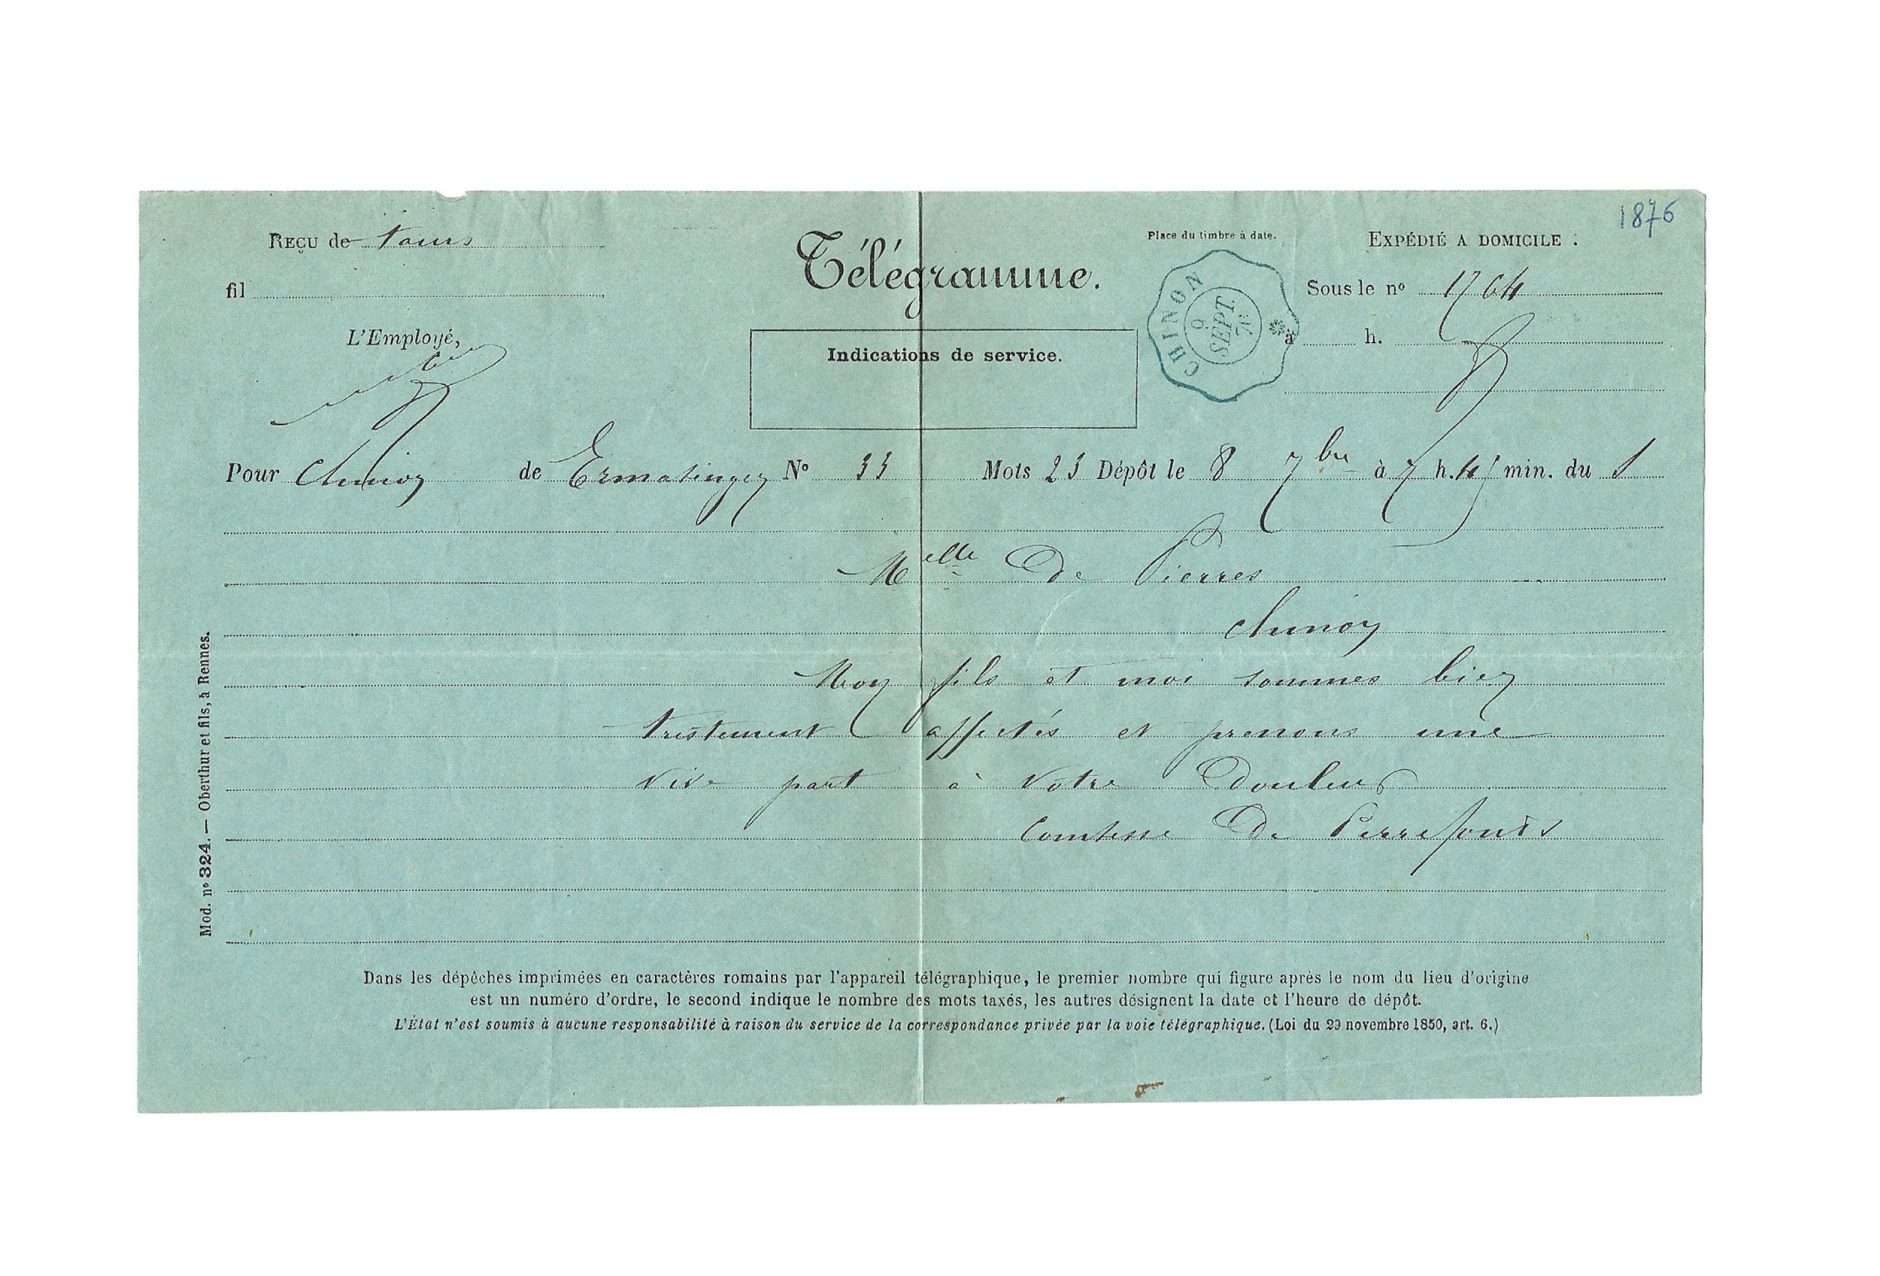 1876
REÇU de tours
Télégramme.
Place du timbre à date.
EXPÉDIÉ A DOMICILE :
fil
CHINON
9
SEPT.
76
Sous le nº 1764
L'Employé,
à h.
Indications de service.
Pour Chinon de Ermatingen Nº 33 Mots 23 Dépôt le 8 7bre à 7 h. 45 min. du S
Melle De Pierres
Chinon
Mon fils et moi sommes bien
tristement affectés et prenons une
vive part à votre Douleur
Comtesse De Pierrefonds
Mod. nº 324. — Oberthur et fils, à Rennes.
Dans les dépêches imprimées en caractères romains par l'appareil télégraphique, le premier nombre qui figure après le nom du lieu d'origine
est un numéro d'ordre, le second indique le nombre des mots taxés, les autres désignent la date et l'heure de dépôt.
L'État n'est soumis à aucune responsabilité à raison du service de la correspondance privée par la voie télégraphique. (Loi du 29 novembre 1850, art. 6.)